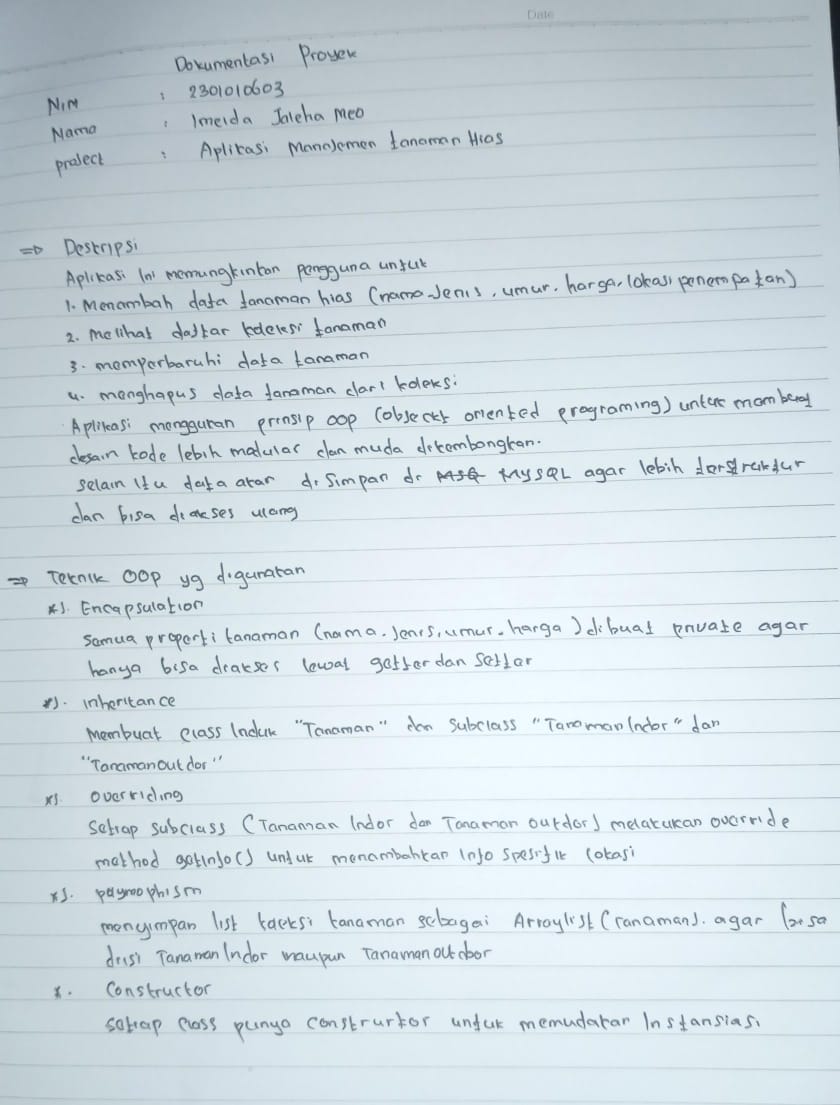 Date
Dokumentasi Proyek
Nim : 2301010603
Nama : Imelda Jaleha Meo
project : Aplikasi Manajemen tanaman Hias
=> Deskripsi
Aplikasi ini memungkinkan pengguna untuk
1. Menambah data tanaman hias (nama-Jenis, umur, harga, lokasi penempatan)
2. melihat daftar koleksi tanaman
3. memperbaruhi data tanaman
4. menghapus data tanaman dari koleksi
Aplikasi menggunan prinsip oop (objeckt oriented programing) untuk membuat
desain kode lebih madular dan muda dikembangkan.
selain itu data akan di simpan di MSQ MySQL agar lebih terstruktur
dan bisa diakses ulang
=> Teknik OOp yg digunakan
*). Encapsulation
Semua properti tanaman (nama. Jenis, umur. harga) dibuat private agar
hanya bisa diakses lewat getter dan setter
*). inheritance
Membuat class Induk "Tanaman" dan subclass "TanamanIndor" dan
"Tanamanoutdor"
*). overriding
Setiap subclass (Tanaman Indor dan Tanaman outdor) melakukan override
method getinfo() untuk menambahkan info spesifik lokasi
*). polymoophism
menyimpan list koleksi tanaman sebagai Arraylist (Tanaman). agar bisa
diisi TanamanIndor maupun Tanamanoutdoor
*. Constructor
setiap class punya construktor untuk memudakan Instansiasi